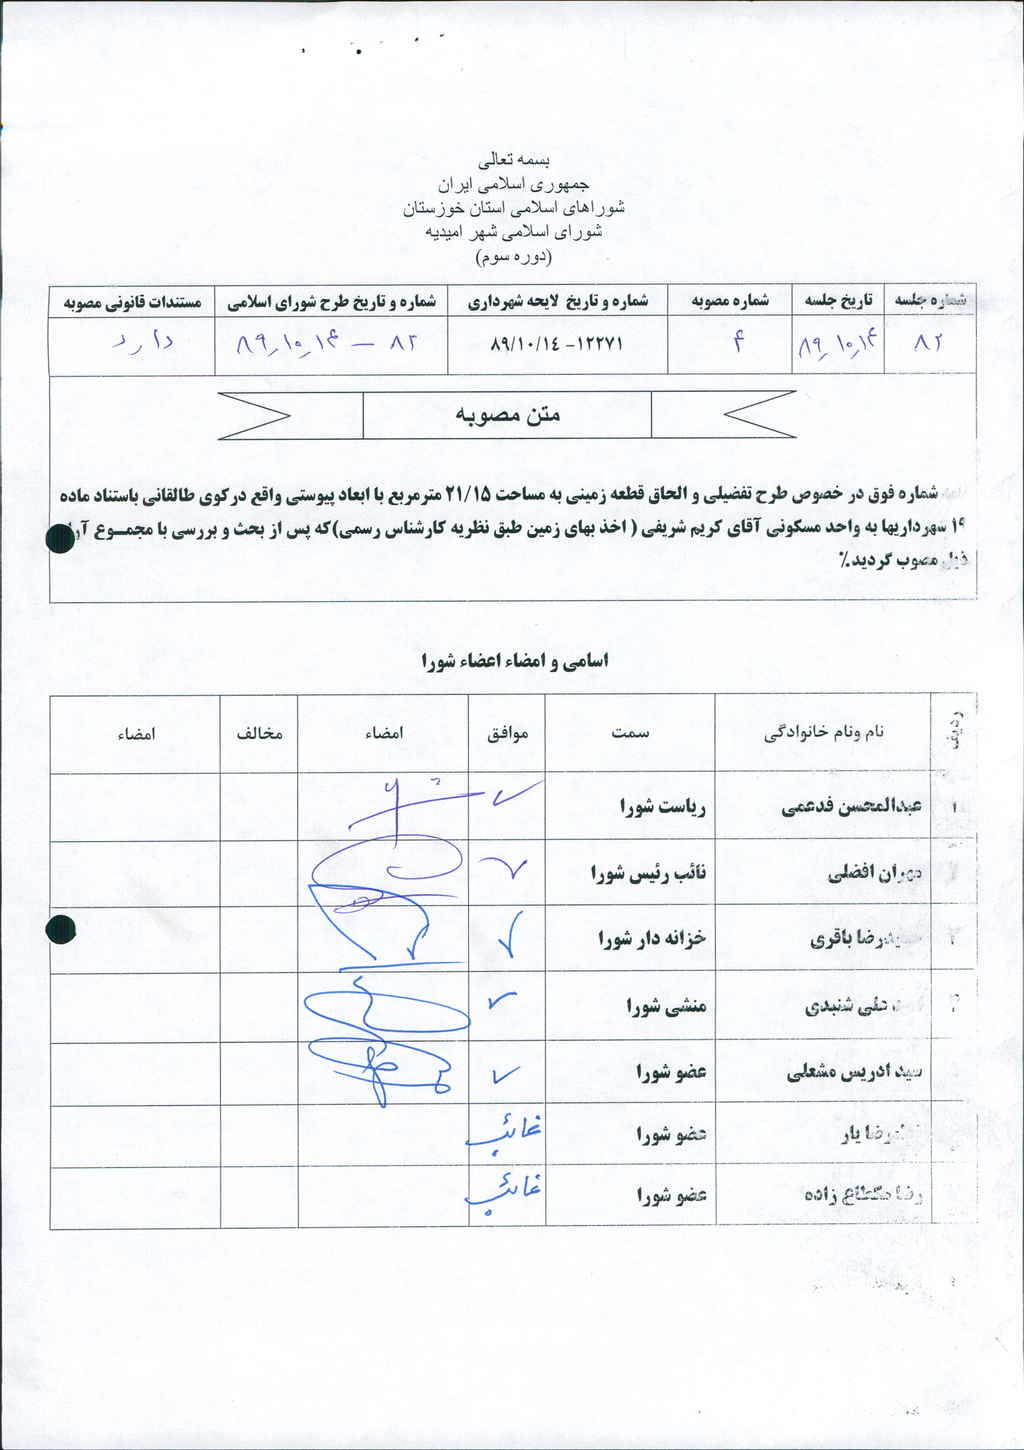 بسمه تعالی
جمهوری اسلامی ایران
شوراهای اسلامی استان خوزستان
شورای اسلامی شهر امیدیه
(دوره سوم)
شماره جلسه تاریخ جلسه شماره مصوبه شماره و تاریخ لایحه شهرداری شماره و تاریخ طرح شورای اسلامی مستندات قانونی مصوبه
۸۲ ۸۹٫۱۰٫۱۴ ۴ ۱۲۲۷۱-۸۹/۱۰/۱٤ ۸۲ – ۸۹٫۱۰٫۱۴ دارد
متن مصوبه
شماره فوق در خصوص طرح تفضیلی و الحاق قطعه زمینی به مساحت ۲۱/۱۵ مترمربع با ابعاد پیوستی واقع درکوی طالقانی باستناد ماده
شهرداریها به واحد مسکونی آقای کریم شریفی ( اخذ بهای زمین طبق نظریه کارشناس رسمی)که پس از بحث و بررسی با مجمــوع
ذیل مصوب گردید.٪
اسامی و امضاء اعضاء شورا
ردیف نام ونام خانوادگی سمت موافق امضاء مخالف امضاء
۱ عبدالمحسن فدعمی ریاست شورا
مهران افضلی نائب رئیس شورا
باقری خزانه دار شورا
شنبدی منشی شورا
سید ادریس مشعلی عضو شورا
یار عضو شورا غائب
رضا زاده عضو شورا غائب